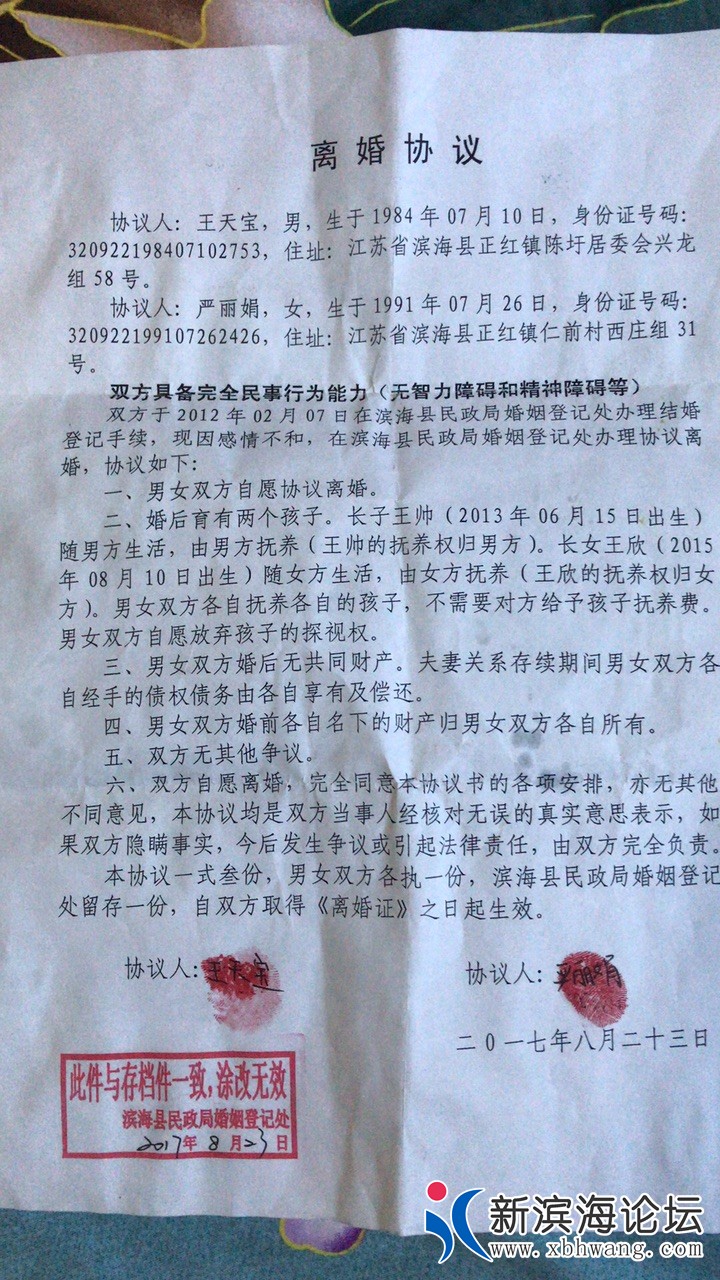 离婚协议
协议人：王天宝，男，生于1984年07月10日，身份证号码：
320922198407102753，住址：江苏省滨海县正红镇陈圩居委会兴龙
组58号。
协议人：严丽娟，女，生于1991年07月26日，身份证号码：
320922199107262426，住址：江苏省滨海县正红镇仁前村西庄组31
号。
双方具备完全民事行为能力（无智力障碍和精神障碍等）
双方于2012年02月07日在滨海县民政局婚姻登记处办理结婚
登记手续，现因感情不和，在滨海县民政局婚姻登记处办理协议离
婚，协议如下：
一、男女双方自愿协议离婚。
二、婚后育有两个孩子。长子王帅（2013年06月15日出生）
随男方生活，由男方抚养（王帅的抚养权归男方）。长女王欣（2015
年08月10日出生）随女方生活，由女方抚养（王欣的抚养权归女
方）。男女双方各自抚养各自的孩子，不需要对方给予孩子抚养费。
男女双方自愿放弃孩子的探视权。
三、男女双方婚后无共同财产。夫妻关系存续期间男女双方各
自经手的债权债务由各自享有及偿还。
四、男女双方婚前各自名下的财产归男女双方各自所有。
五、双方无其他争议。
六、双方自愿离婚，完全同意本协议书的各项安排，亦无其他
不同意见，本协议均是双方当事人经核对无误的真实意思表示，如
果双方隐瞒事实，今后发生争议或引起法律责任，由双方完全负责。
本协议一式叁份，男女双方各执一份，滨海县民政局婚姻登记
处留存一份，自双方取得《离婚证》之日起生效。
协议人：王天宝 协议人：严丽娟
二〇一七年八月二十三日
此件与存档件一致，涂改无效
滨海县民政局婚姻登记处
2017年8月23日
新滨海论坛
www.xbhwang.com